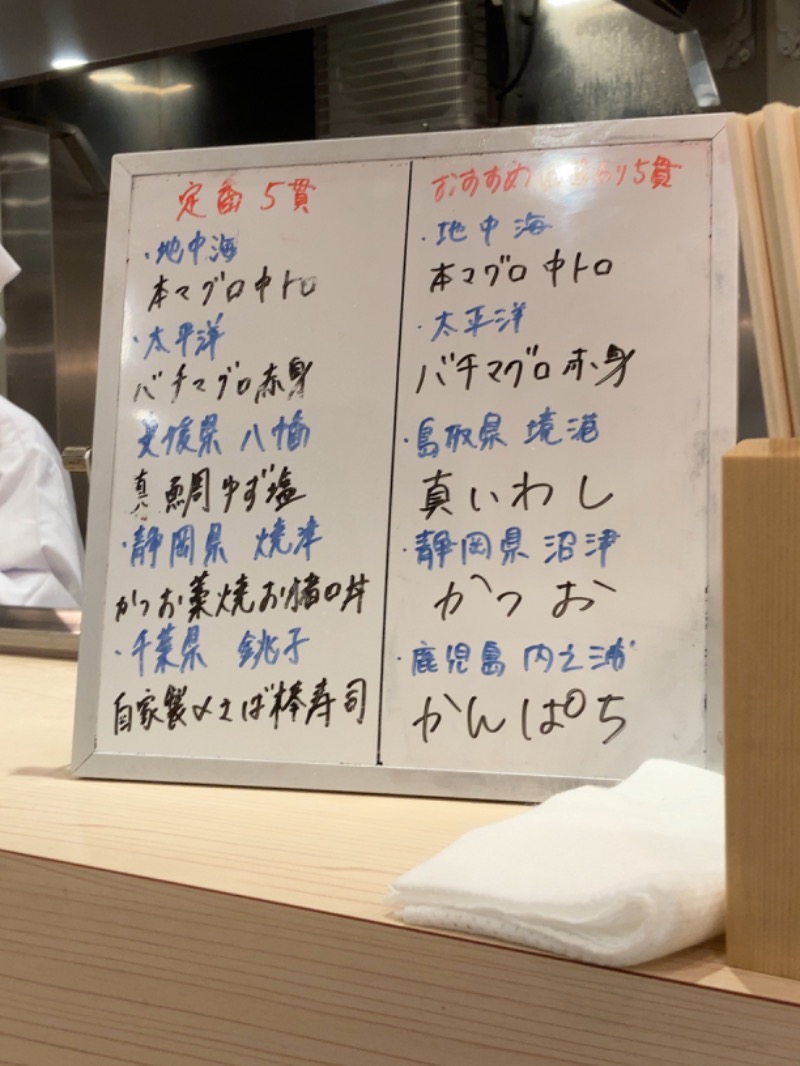 定番 5貫
・地中海
本マグロ中トロ
・太平洋
バチマグロ赤身
愛媛県 八幡
真鯛ゆず塩
・静岡県 焼津
かつお藁焼お猪口丼
・千葉県 銚子
自家製〆さば棒寿司
おすすめ 5貫
・地中海
本マグロ 中トロ
・太平洋
バチマグロ赤身
・鳥取県 境港
真いわし
・静岡県 沼津
かつお
・鹿児島 内之浦
かんぱち